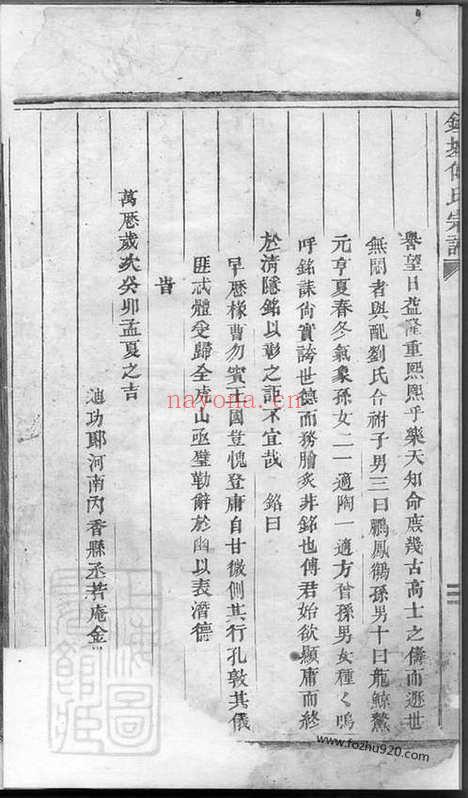 傅氏宗譜
譽望日益隆重熙熙乎樂天知命庶幾古高士之儔而遯世
無悶者與配劉氏合祔子男三曰鵬鳳鶴孫男十曰龍鯨鰲
元亨夏春冬氣象孫女二一適陶一適方曾孫男女種々嗚
呼銘誄尚實誇世德而務膾炙非銘也傅君始欲顯庸而終
於清隱銘以彰之詎不宜哉 銘曰
早歷椽曹勿賓王國豈愧登庸自甘微側其行孔敦其儀
匪忒體受歸全虎山亟璧勒辭於幽以表潛德
旹
萬厯歲次癸卯孟夏之吉
迪功郎河南內香縣丞若庵金
nayona.cn
www.fozhu920.com